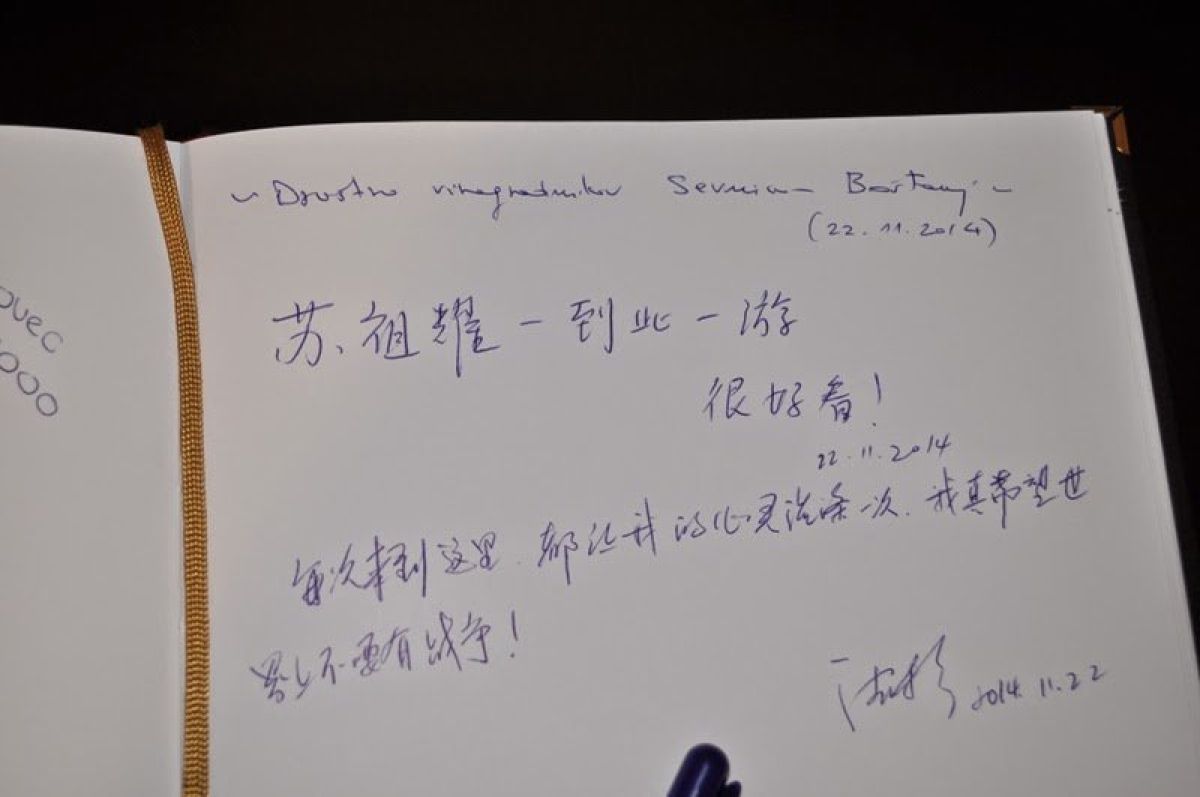 ovec
000
~ Društvo vinogradnikov Sevnica - Boštanj ~
(22.11.2014)
苏祖耀一到此一游
很好看!
22.11.2014
每次来到这里.都让我的心灵洗涤一次.我真希望世
界上不要有战争!
2014.11.22